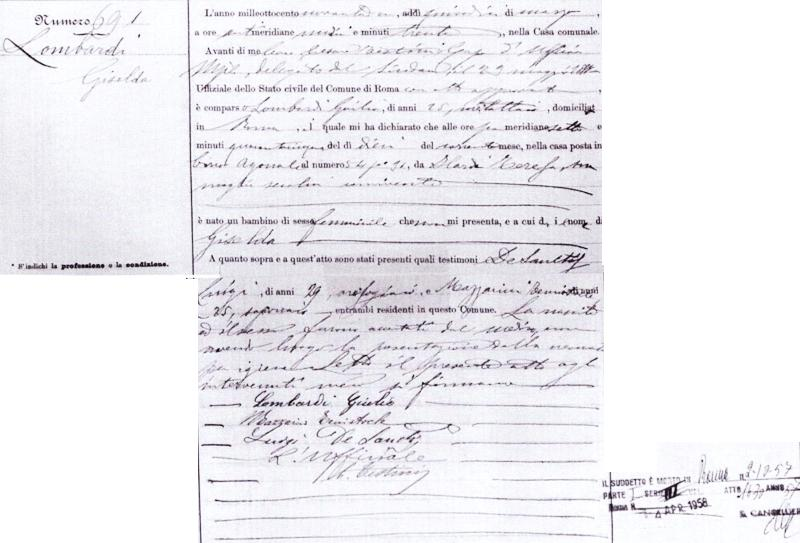 Numero 691
Lombardi
Giselda
* S'indichi la professione o la condizione.
L'anno milleottocento novanta, addì quindici di marzo,
a ore antimeridiane undici e minuti trenta, nella Casa comunale.
Avanti di me
delegato del Sindaco il 29 maggio
Uffiziale dello Stato civile del Comune di Roma con atto approvato
è comparso Lombardi Giulio, di anni 25, domiciliato
in Roma, il quale mi ha dichiarato che alle ore pomeridiane sette e
minuti quarantacinque, del dì dieci del corrente mese, nella casa posta in
Agonale al numero 54 p° 3°, da Teresa, sua
moglie seco lui convivente
è nato un bambino di sesso femminile che non mi presenta, e a cui dà i nomi di
Giselda
A quanto sopra e a quest'atto sono stati presenti quali testimoni De Sanctis
Luigi, di anni 29, orologiaio, e Mazzarini di anni
25, entrambi residenti in questo Comune. La nascita
ed il sesso furono accertati dal medico, non
avendo luogo la presentazione della neonata
per igiene. Letto il presente atto agli
intervenuti meco si firmano
Lombardi Giulio
Mazzarini
Luigi De Sanctis
L'Uffiziale
IL SUDDETTO È MORTO IN Roma il 2-12-57
PARTE I SERIE ATTO ANNO 57
Roma li 4 APR 1958
IL CANCELLIERE